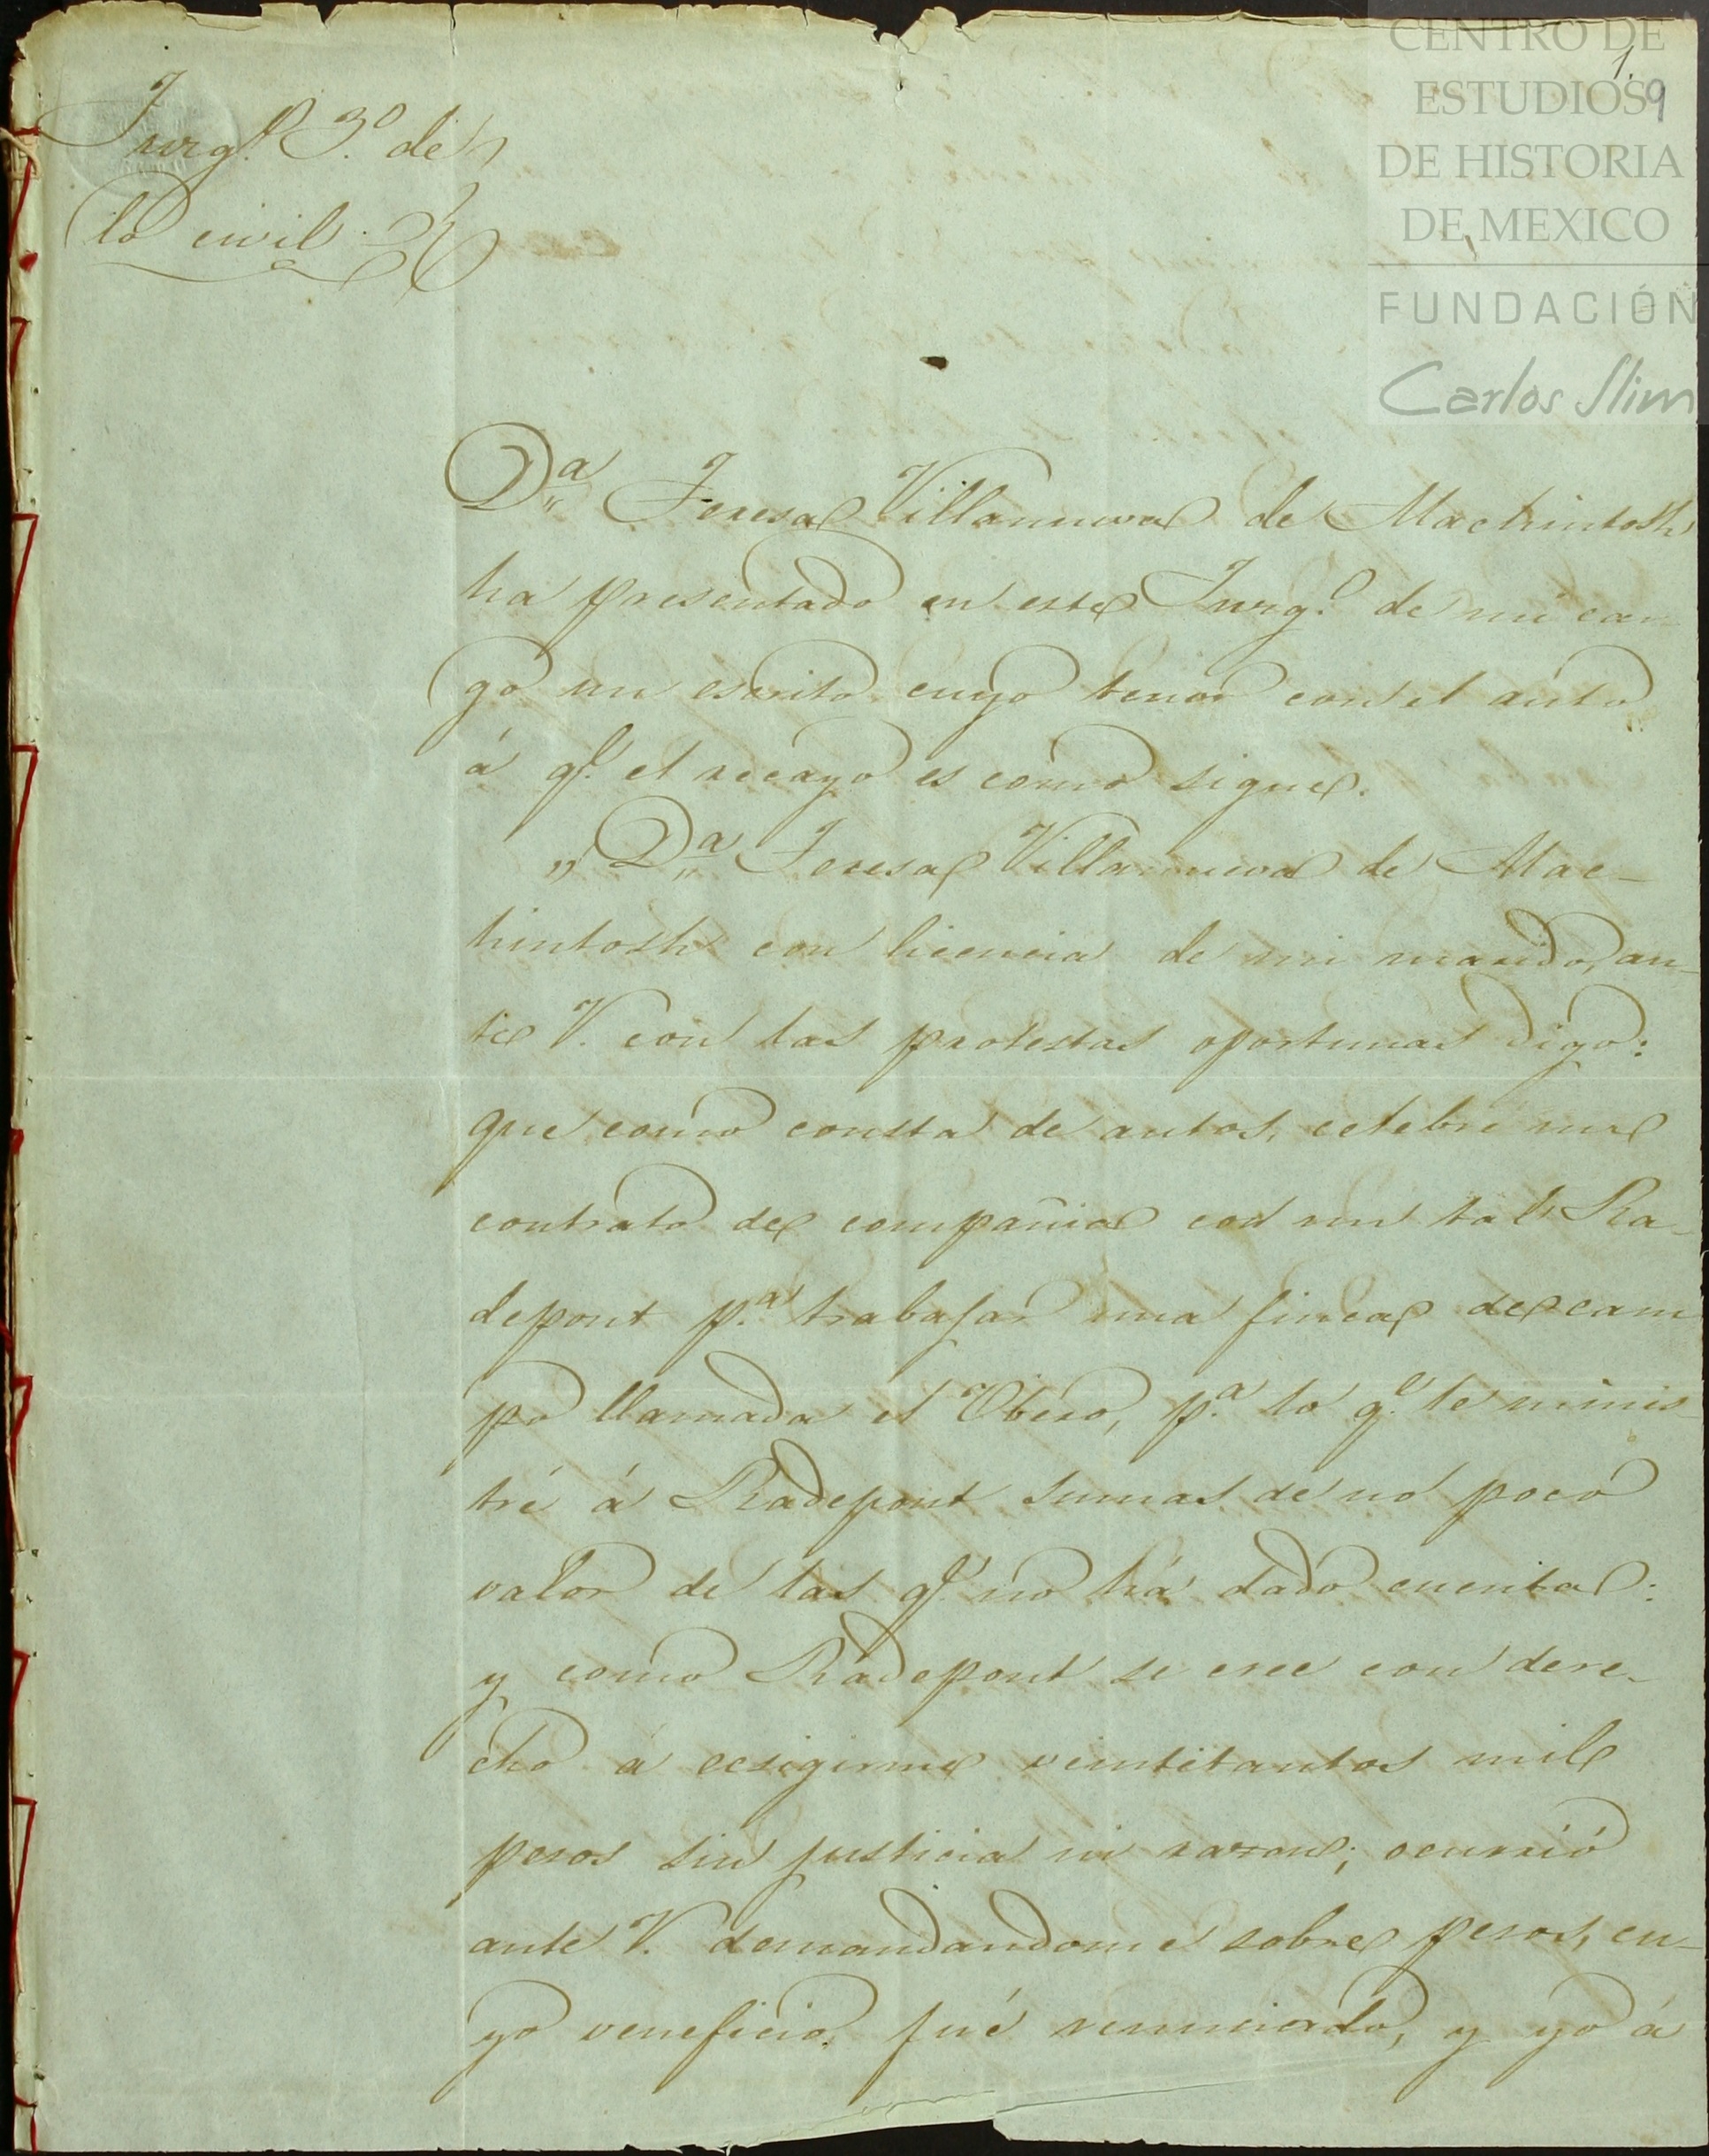 1.
9
CENTRO DE
ESTUDIOS
DE HISTORIA
DE MEXICO
FUNDACIÓN
Carlos Slim
Juzg.º 3.º de
lo civil.
D.ª Teresa Villanueva de Mackintosh
ha presentado en este Juzg.º de mi car
go un escrito cuyo tenor con el auto
á q.e el recayó es como sigue.
„ D.ª Teresa Villanueva de Mac-
kintosh con licencia de mi marido, an-
te V. con las protestas oportunas digo:
que como consta de autos, celebré un
contrato de compañia con un tal Ra-
depont p.ª trabajar una finca de cam
po llamada el Obero, p.ª lo q.e le minis-
tré á Radepont sumas de no poco
valor de las q.e no há dado cuenta:
y como Radepont se cree con dere-
cho á ecsigirme veintitantos mil
pesos sin justicia ni razon; ocurrió
ante V. demandandome sobre pesos, cu-
yo veneficio fué renunciado, y yo á